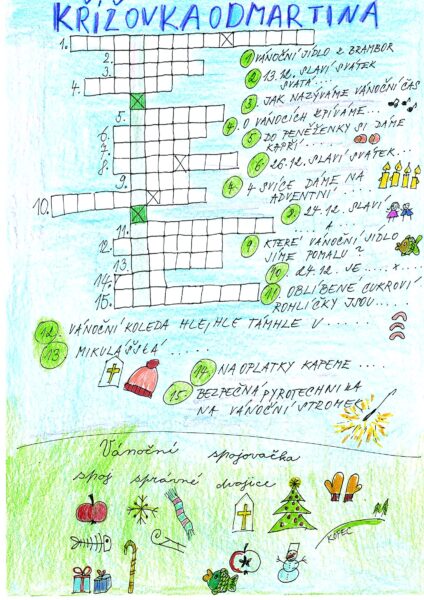 KŘÍŽOVKA OD MARTINA
1.
2.
3.
4.
5.
6.
7.
8.
9.
10.
11.
12.
13.
14.
15.
1 VÁNOČNÍ JÍDLO Z BRAMBOR
2 13.12. SLAVÍ SVÁTEK
SVATÁ...
3. JAK NAZÝVÁME VÁNOČNÍ ČAS
4. O VÁNOCÍCH ZPÍVÁME...
5 DO PENĚŽENKY SI DÁME
KAPŘÍ......
6 26.12. SLAVÍ SVÁTEK...
7. 4 SVÍCE DÁME NA
ADVENTNÍ......
8. 24.12. SLAVÍ
..... A .....
9 KTERÉ VÁNOČNÍ JÍDLO
JÍME POMALU?
10 24.12. JE ..... X ....
11 OBLÍBENÉ CUKROVÍ
ROHLÍČKY JSOU.....
12 VÁNOČNÍ KOLEDA HLE, HLE TÁMHLE V ......
13 MIKULÁŠSKÁ .....
14 NA OPLATKY KAPEME ....
15 BEZPEČNÁ PYROTECHNIKA
NA VÁNOČNÍ STROMEK
Vánoční spojovačka
spoj správné dvojice
KOPEC